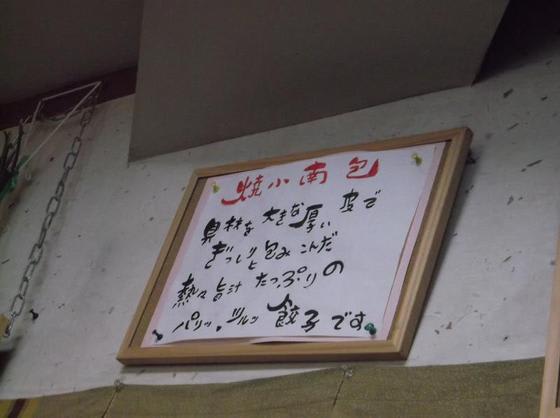 焼小南包
具材を大きな厚い皮で
ぎっしりと包みこんだ
熱々旨汁たっぷりの
パリッ。ツルッ餃子です